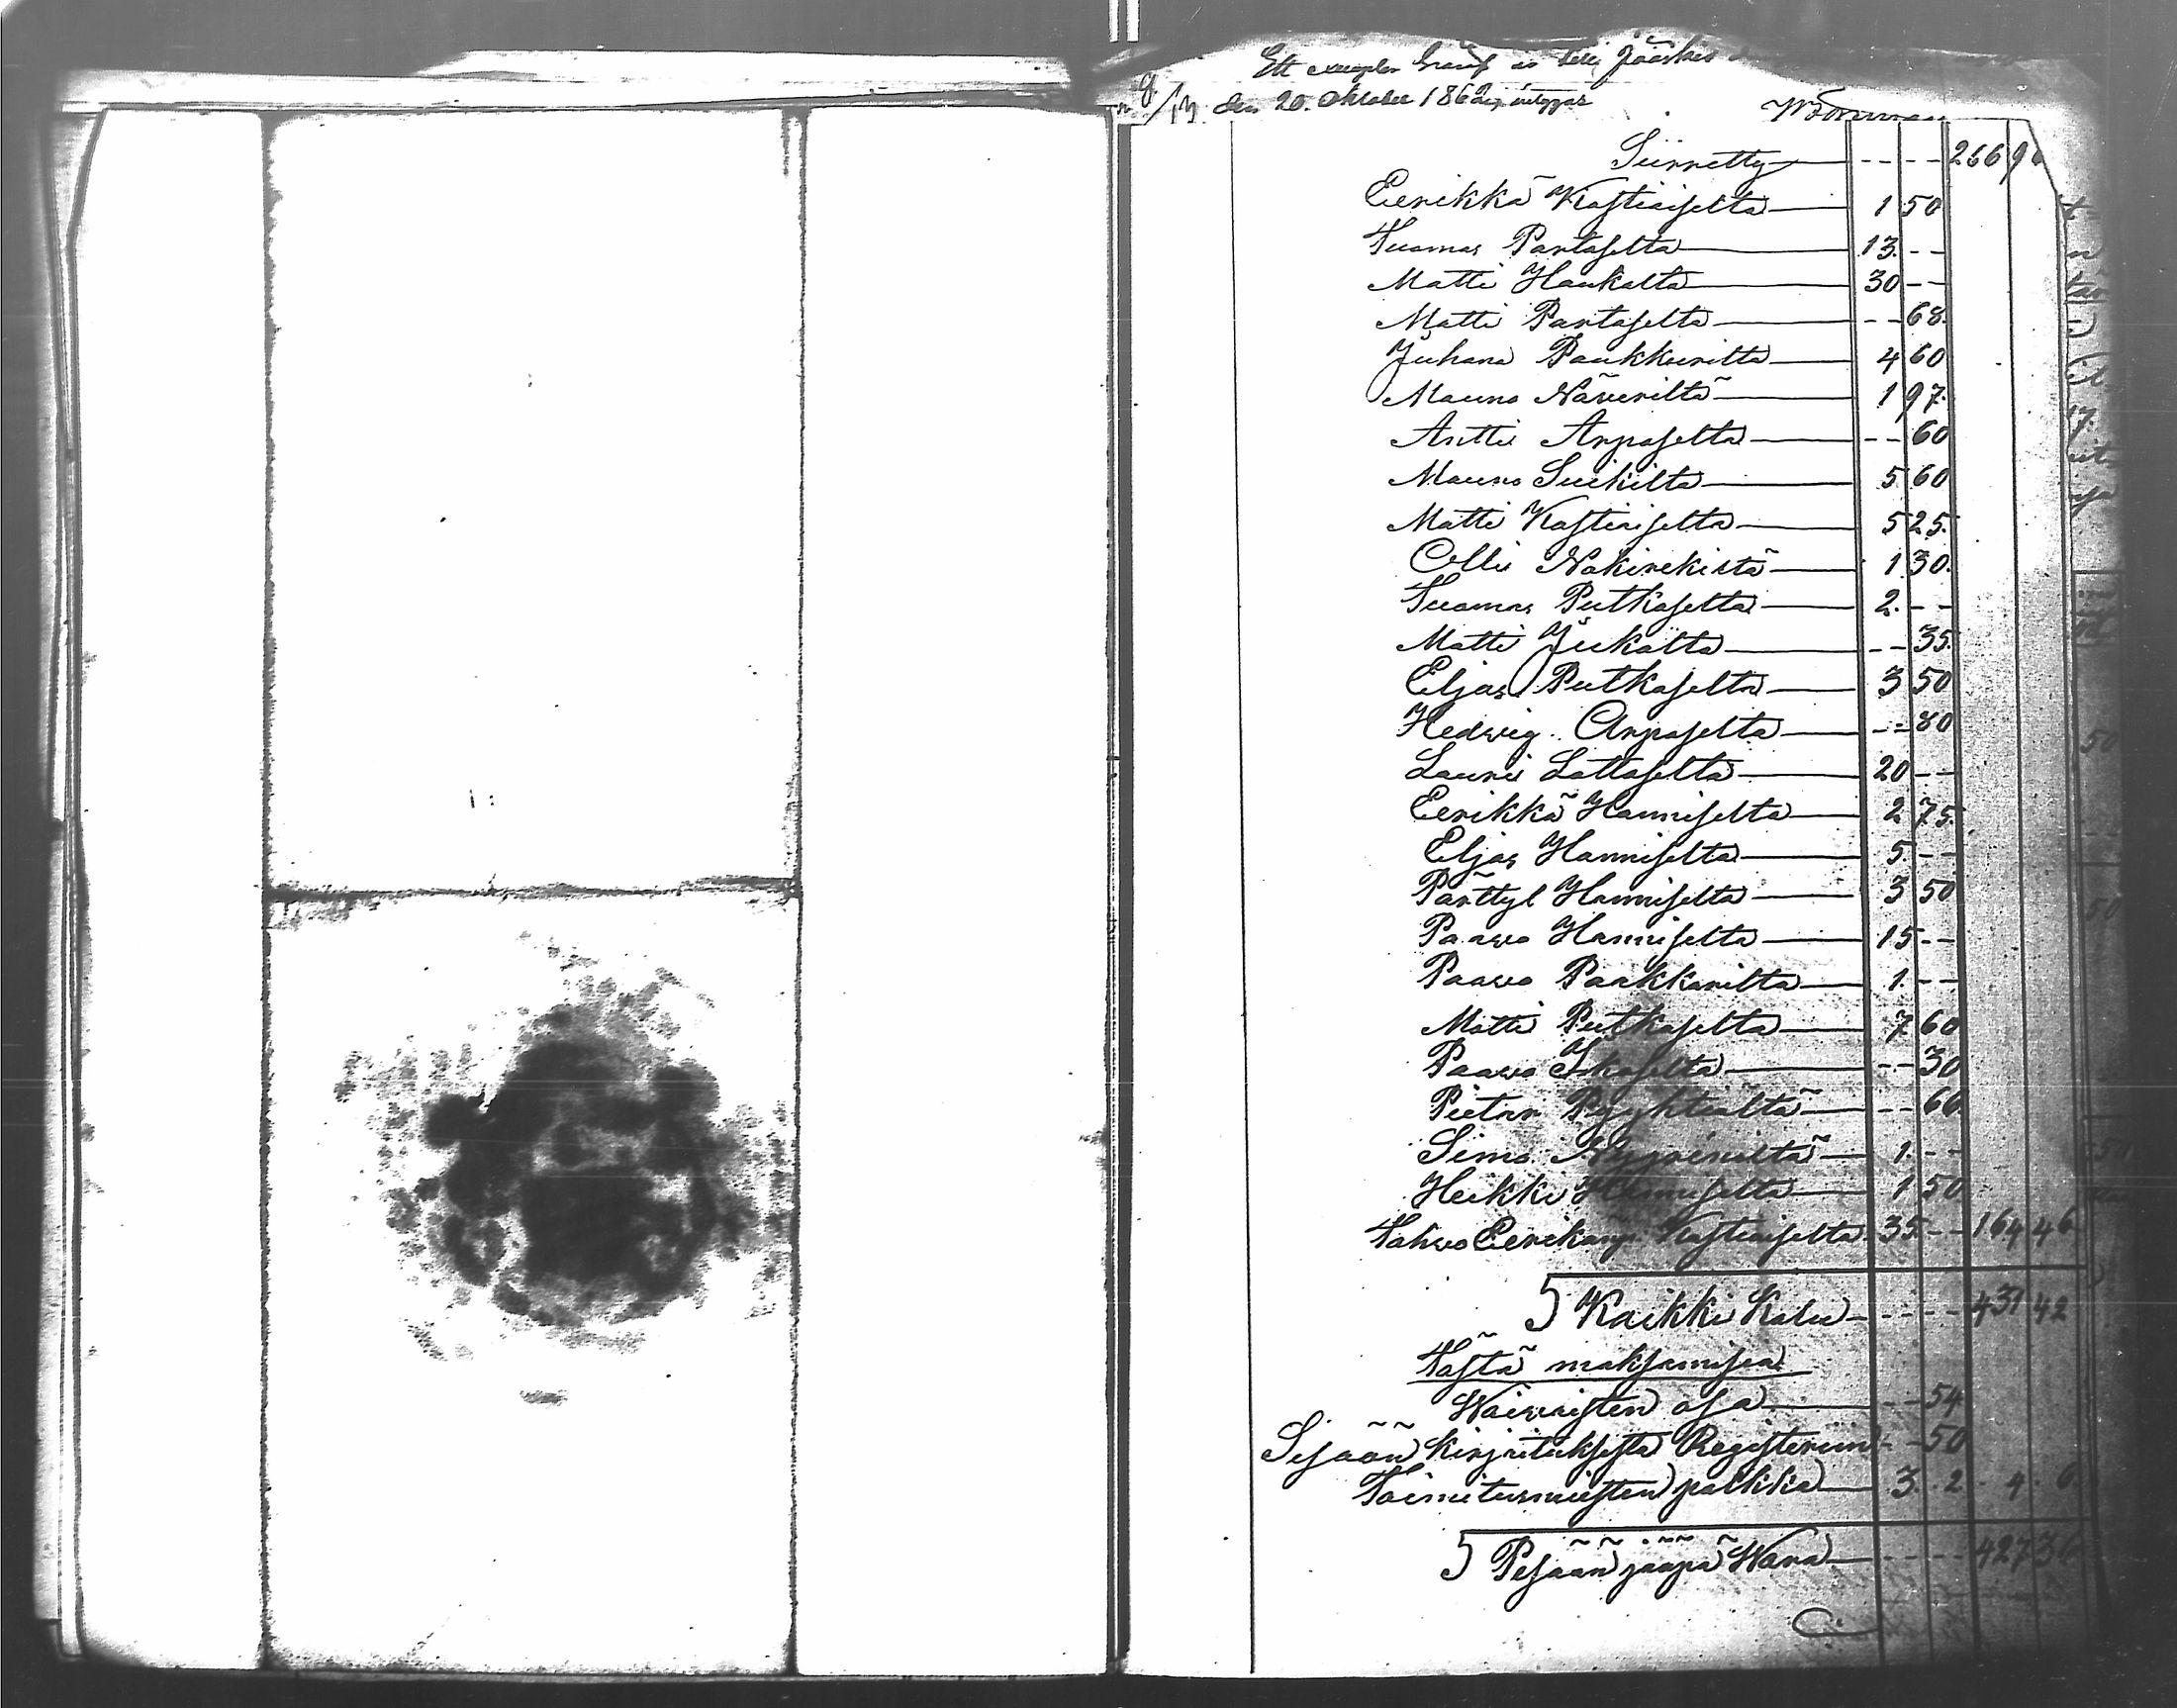 Ett exemplar häraf är till Jääskis
den 20. Oktober 1862
Siirretty - - - - 266 96
Eerikkä Kostiaiselta 1 50
Tuomas Partaselta 13. - -
Matti Haukalta 30 - -
Matti Partaselta - - 68.
Juhana Paukkurilta 4 60
Mauno Näverilta 1 97.
Antti Arpaselta - - 60
Mauno Suikilta 5 60
Matti Kostiaiselta 5 25.
Olli Nokirekistä 1 30.
Tuomas Putkaselta 2. - -
Matti Jukalta - - 35.
Eljas Putkaselta 3 50
Hedvig Arpaselta - - 80
Lauri Lattaselta 20 - -
Eerikkä Hanniselta 2 75.
Eljas Hanniselta 5 - -
Parttyl Hanniselta 3 50
Paavo Hanniselta 15 - -
Paavo Paakkarilta 1. - -
Matti Putkaselta 7 60
Paavo Ikaselta - - 30
Pietar Pyyhtiältä - - 60
Simo 1. - -
Heikki Hanniselta 1 50
Tahvo Eerikanp. Kostiaiselta 35 - - 164 46
Kaikki Kalu - - - - 431 42
Tästä maksamisia
Waivaisten osa - - 54
Sisään kirjoituksesta Registeriin - - 50
Toimitusmiesten palkka 3. 2. 4. 6
Pesään jääpä Wara - - - - 427 36